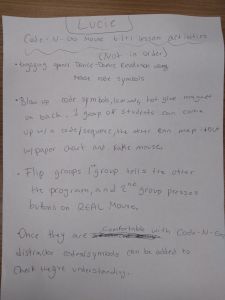 Lucie
Code-N-Go Mouse lesson activities
(Not in order)
Dance-Dance Revolution using
Mouse code symbols
• Blow up code symbols, laminate, hot glue magnet
on back. 1 group of students can come
up w/ a code/sequence, the other
w/ paper chart and fake mouse.
• Flip groups 1st group tells the other
the program, and 2nd group presses
buttons on REAL Mouse.
• Once they are comfortable with Code-N-Go
distractor cards/symbols can be added to
check understanding.